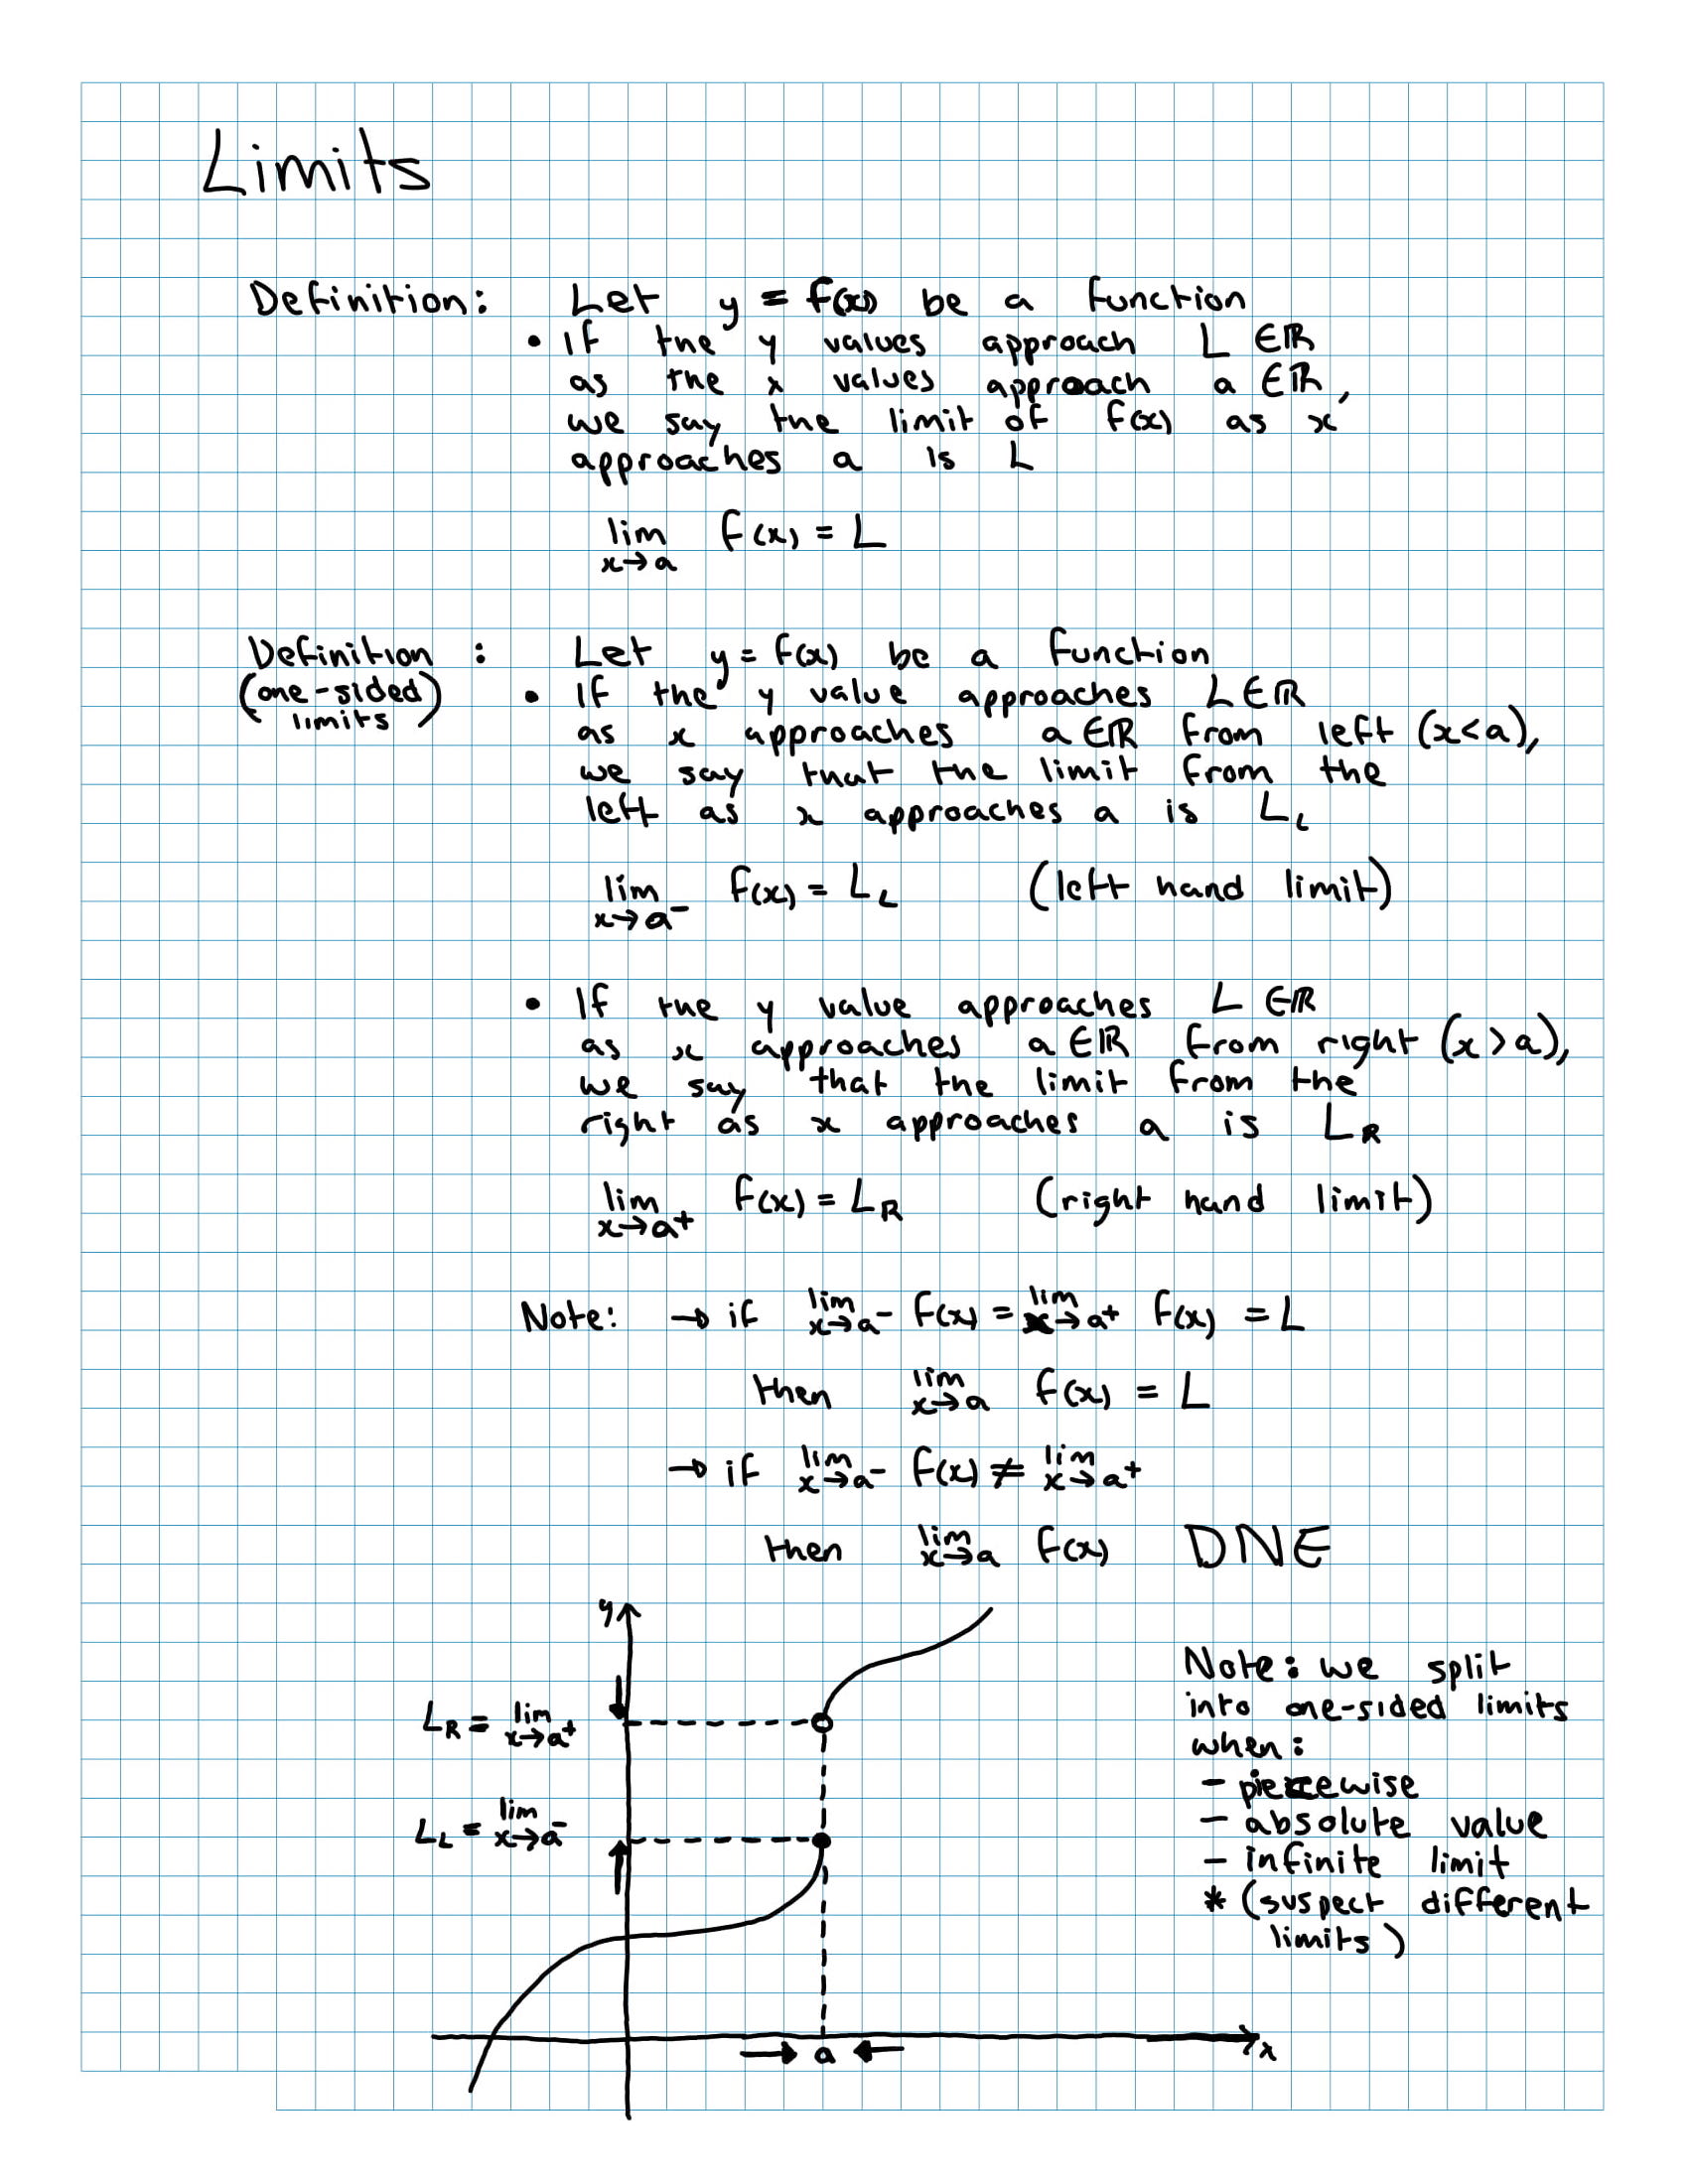 Limits
Definition: Let y = f(x) be a function
• If the y values approach L ∈ ℝ
as the x values approach a ∈ ℝ,
we say the limit of f(x) as x
approaches a is L
lim f(x) = L
x→a
Definition : Let y = f(x) be a function
(one-sided limits)
• If the y value approaches L ∈ ℝ
as x approaches a ∈ ℝ from left (x<a),
we say that the limit from the
left as x approaches a is L_L
lim f(x) = L_L (left hand limit)
x→a⁻
• If the y value approaches L ∈ ℝ
as x approaches a ∈ ℝ from right (x>a),
we say that the limit from the
right as x approaches a is L_R
lim f(x) = L_R (right hand limit)
x→a⁺
Note: → if lim x→a⁻ f(x) = lim x→a⁺ f(x) = L
then lim x→a f(x) = L
→ if lim x→a⁻ f(x) ≠ lim x→a⁺
then lim x→a f(x) DNE
y
L_R = lim x→a⁺
L_L = lim x→a⁻
a
x
Note: we split
into one-sided limits
when:
- piecewise
- absolute value
- infinite limit
* (suspect different
limits)